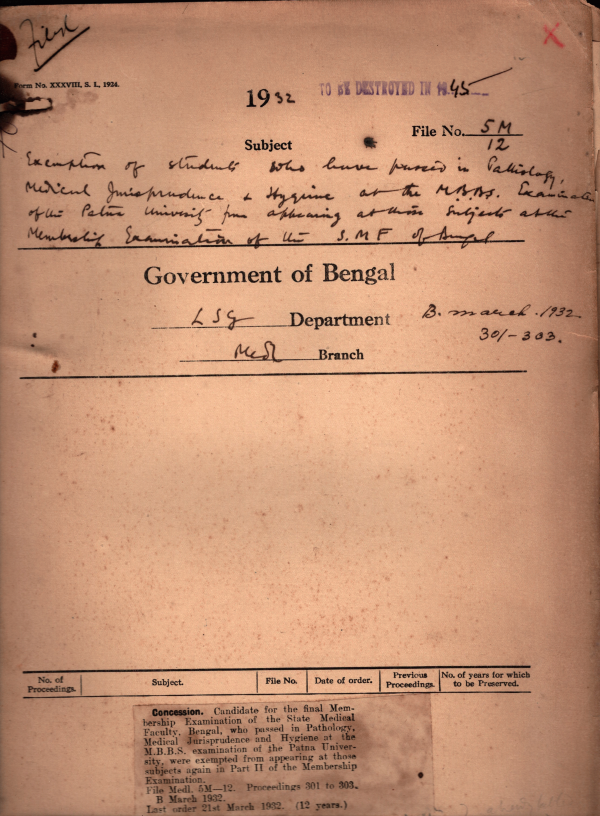 Filed
Form No. XXXVIII, S. I., 1924.
1932
TO BE DESTROYED IN 1945
File No. 5M
12
Subject
Exemption of students who have passed in Pathology,
Medical Jurisprudence & Hygiene at the M.B.B.S. Examination
of the Patna University from appearing at those Subjects at the
Membership Examination of the S.M.F of Bengal
Government of Bengal
LSG Department
B. March. 1932
301-303.
Medl Branch
No. of Proceedings. Subject. File No. Date of order. Previous Proceedings. No. of years for which to be Preserved.
Concession. Candidate for the final Mem-
bership Examination of the State Medical
Faculty, Bengal, who passed in Pathology,
Medical Jurisprudence and Hygiene at the
M.B.B.S. examination of the Patna Univer-
sity, were exempted from appearing at those
subjects again in Part II of the Membership
Examination.
File Medl. 5M—12. Proceedings 301 to 303.
B March 1932.
Last order 21st March 1932. (12 years.)